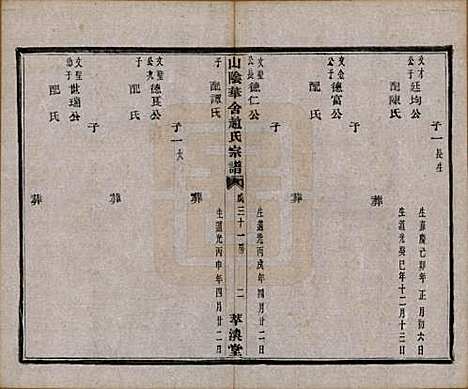 文才
公子
廷均公
生嘉慶己卯年正月初六日
配陳氏
生道光癸巳年十二月十三日
子一
長生
葬
文金
公子
德富公
配氏
子
葬
文聖
公長
子
德仁公
生道光丙戌年四月廿二日
配譚氏
生道光丙申年四月廿二日
山陰華舍趙氏宗譜
三十一
二
萃渙堂
子一
大
葬
文聖
公次
子
德貢公
配氏
子
葬
文聖
公子
世瑞公
配氏
葬